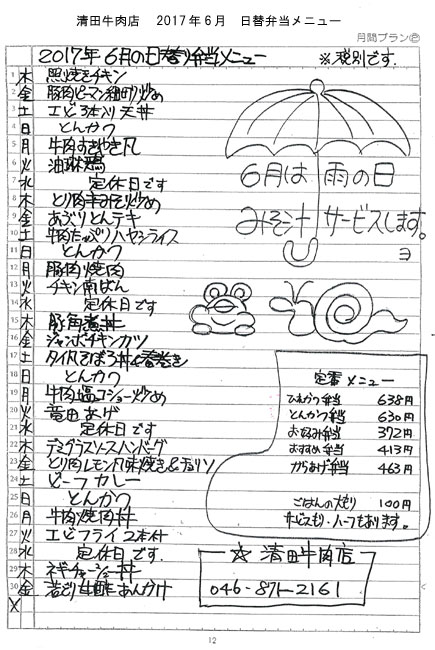 清田牛肉店　2017年6月　日替弁当メニュー
月間プラン
2017年 6月の日替り弁当メニュー ※税別です.
1 木 照焼きチキン
2 金 豚肉ピーマン細切り炒め
3 土 エビ3本入り天丼
4 日 とんかつ
5 月 牛肉すきやき風
6 火 油淋鶏
7 水 定休日です
8 木 とり肉辛みそ炒め
9 金 あぶりとんテキ
10 土 牛肉たっぷりハヤシライス
11 日 とんかつ
12 月 豚肉焼肉
13 火 チキン南ばん
14 水 定休日です
15 木 豚角煮丼
16 金 ジャンボチキンカツ
17 土 タイ風そぼろ丼&春巻き
18 日 とんかつ
19 月 牛肉塩コショー炒め
20 火 竜田あげ
21 水 定休日です
22 木 デミグラスソースハンバーグ
23 金 とり肉レモン風味焼き&チョリソ
24 土 ビーフカレー
25 日 とんかつ
26 月 牛肉焼肉丼
27 火 エビフライ2本付
28 水 定休日です.
29 木 ネギチャーシュー丼
30 金 若どり生酢あんかけ
6月は雨の日
みそ汁サービスします。
ヨ
定番メニュー
ひれかつ弁当 638円
とんかつ弁当 630円
お好み弁当 372円
おすすめ弁当 413円
からあげ弁当 463円
ごはんの大もり 100円
サービスもり・ハーフもあります。
☆ 清田牛肉店
046-871-2161
12